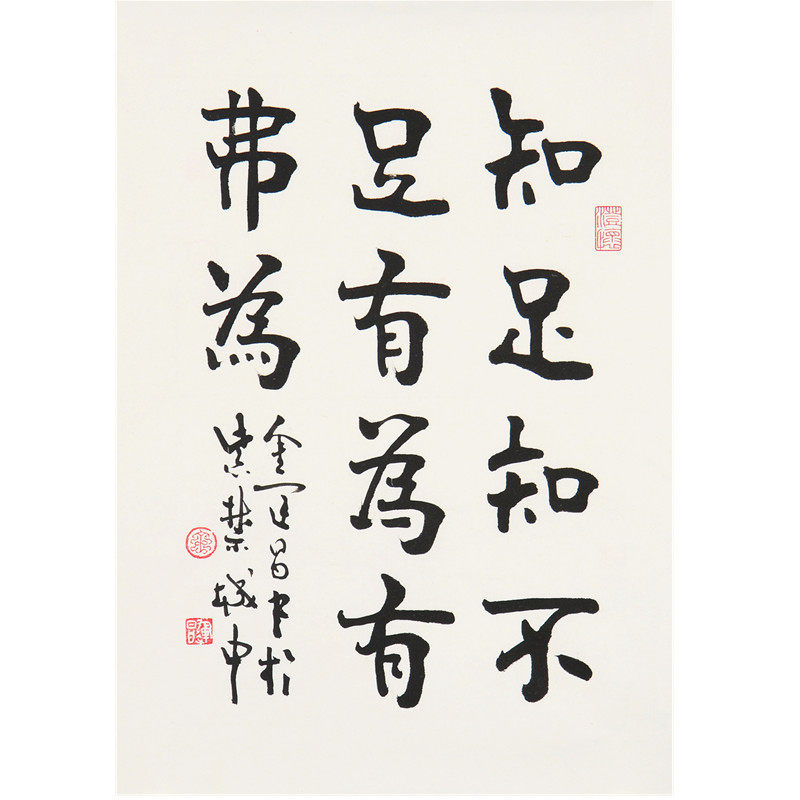 知足知不
足有為有
弗為
金運昌書於
紫禁城中
澄懷